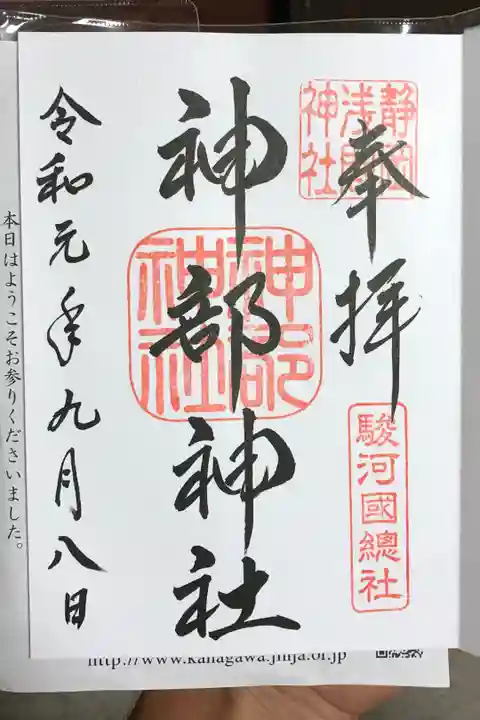 奉拝
静岡
浅間
神社
駿河國總社
神部神社
神部
神社
令和元年九月八日
本日はようこそお参りくださいました。
http://www.kanagawa.jinja.or.jp